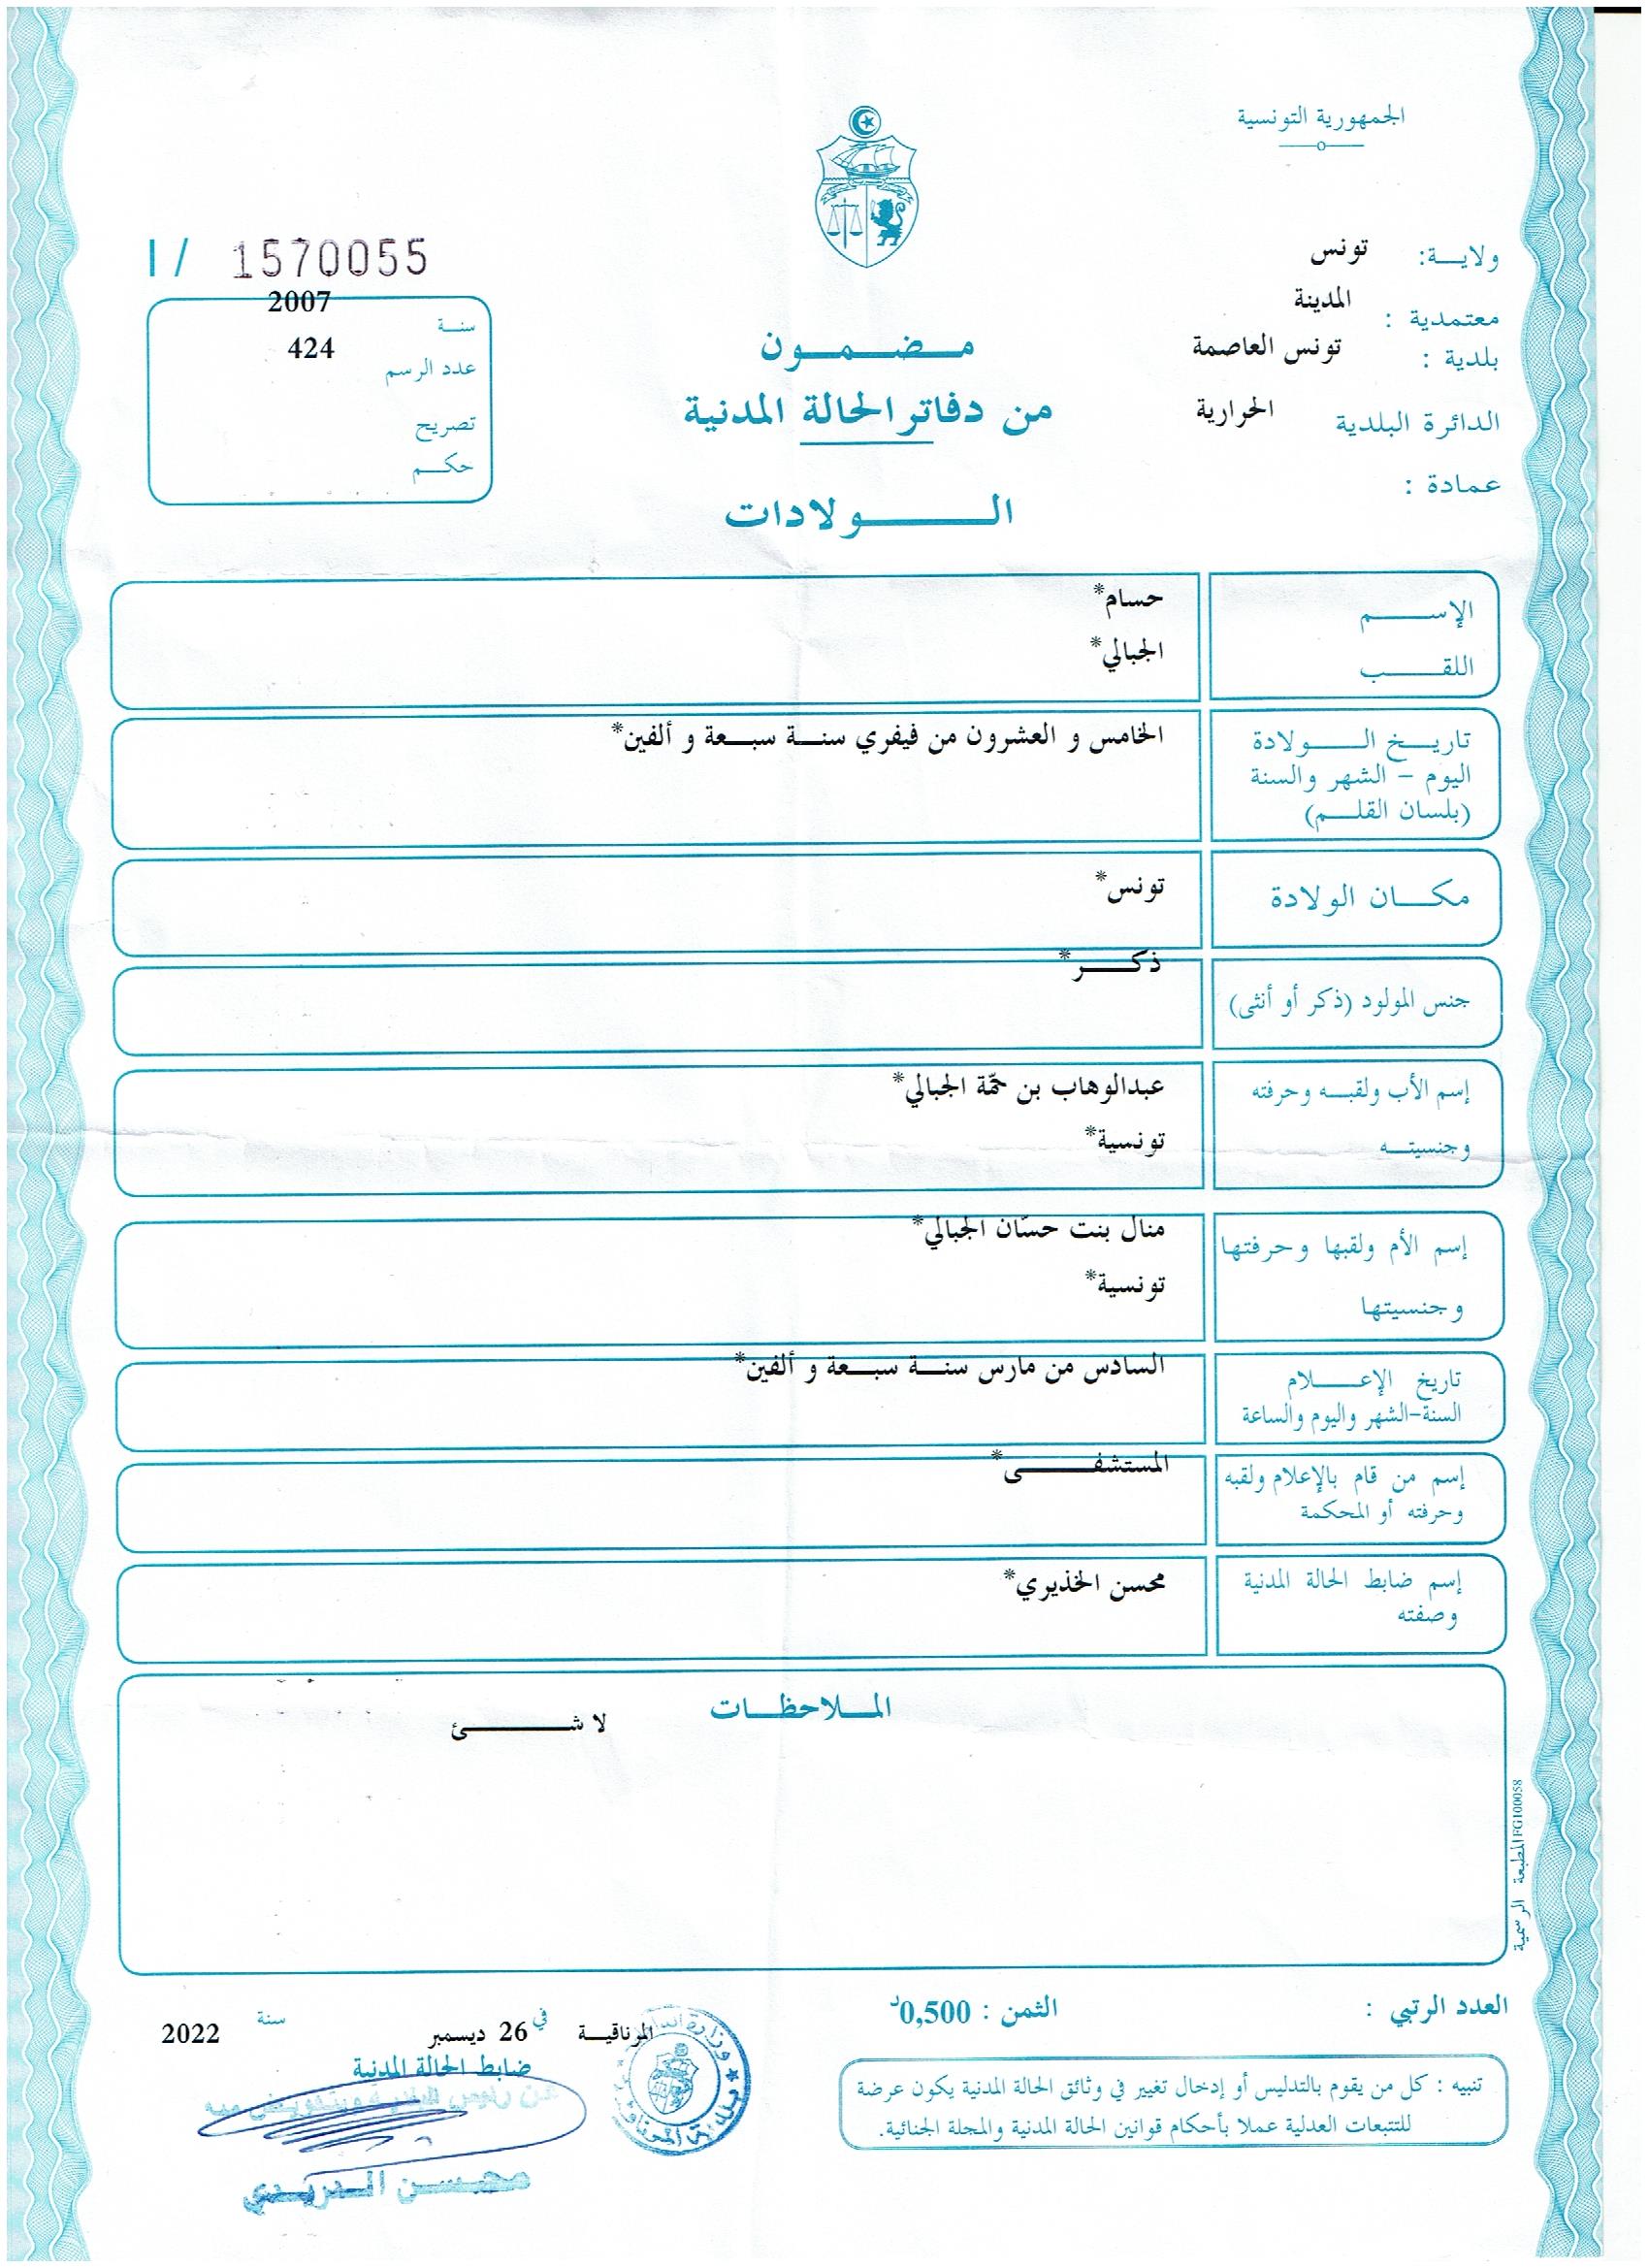 الجمهورية التونسية
ولاية: تونس
معتمدية : المدينة
بلدية : تونس العاصمة
الدائرة البلدية الحرارية
عمادة :
مضمون
من دفاتر الحالة المدنية
الولادات
I / 1570055
سنة 2007
عدد الرسم 424
تصريح
حكم
الإسم حسام*
اللقب الجبالي*
تاريخ الولادة الخامس و العشرون من فيفري سنة سبعة و ألفين*
اليوم - الشهر والسنة
(بلسان القلم)
مكان الولادة تونس*
جنس المولود (ذكر أو أنثى) ذكر*
إسم الأب ولقبه وحرفته عبدالوهاب بن حمّة الجبالي*
وجنسيته تونسية*
إسم الأم ولقبها وحرفتها منال بنت حسّان الجبالي*
وجنسيتها تونسية*
تاريخ الإعلام السادس من مارس سنة سبعة و ألفين*
السنة-الشهر واليوم والساعة
إسم من قام بالإعلام ولقبه المستشفى*
وحرفته أو المحكمة
إسم ضابط الحالة المدنية محسن الخذيري*
وصفته
الملاحظات
لا شئ
المطبعة الرسمية FG100058
العدد الرتبي :
الثمن : 0,500د
المرناقية في 26 ديسمبر سنة 2022
ضابط الحالة المدنية
محسن الدريدي
تنبيه : كل من يقوم بالتدليس أو إدخال تغيير في وثائق الحالة المدنية يكون عرضة
للتتبعات العدلية عملا بأحكام قوانين الحالة المدنية والمجلة الجنائية.